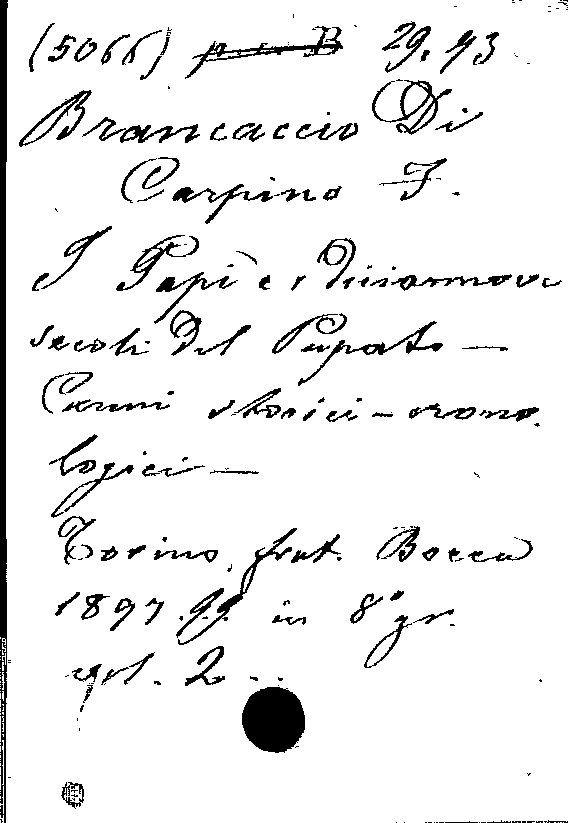 (5066) 29. 43
Brancaccio Di
Carpino F.
I Papi e i diciannove
secoli del Papato —
Cenni storici - crono-
logici —
Torino, frat. Bocca
1897.99. in 8° gr.
vol. 2 ..